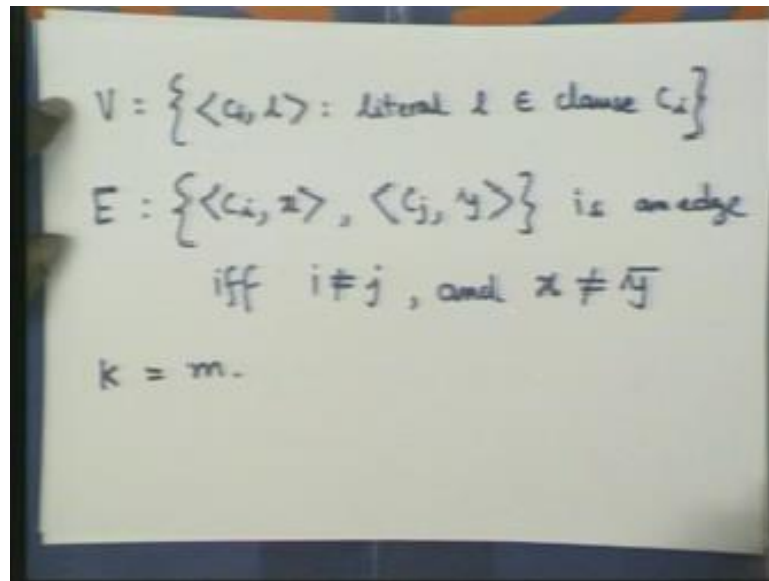 V = {<Cᵢ, l> : literal l ∈ clause Cᵢ}
E : {<Cᵢ, x>, <Cⱼ, y>} is an edge
iff i ≠ j, and x ≠ y̅
k = m.